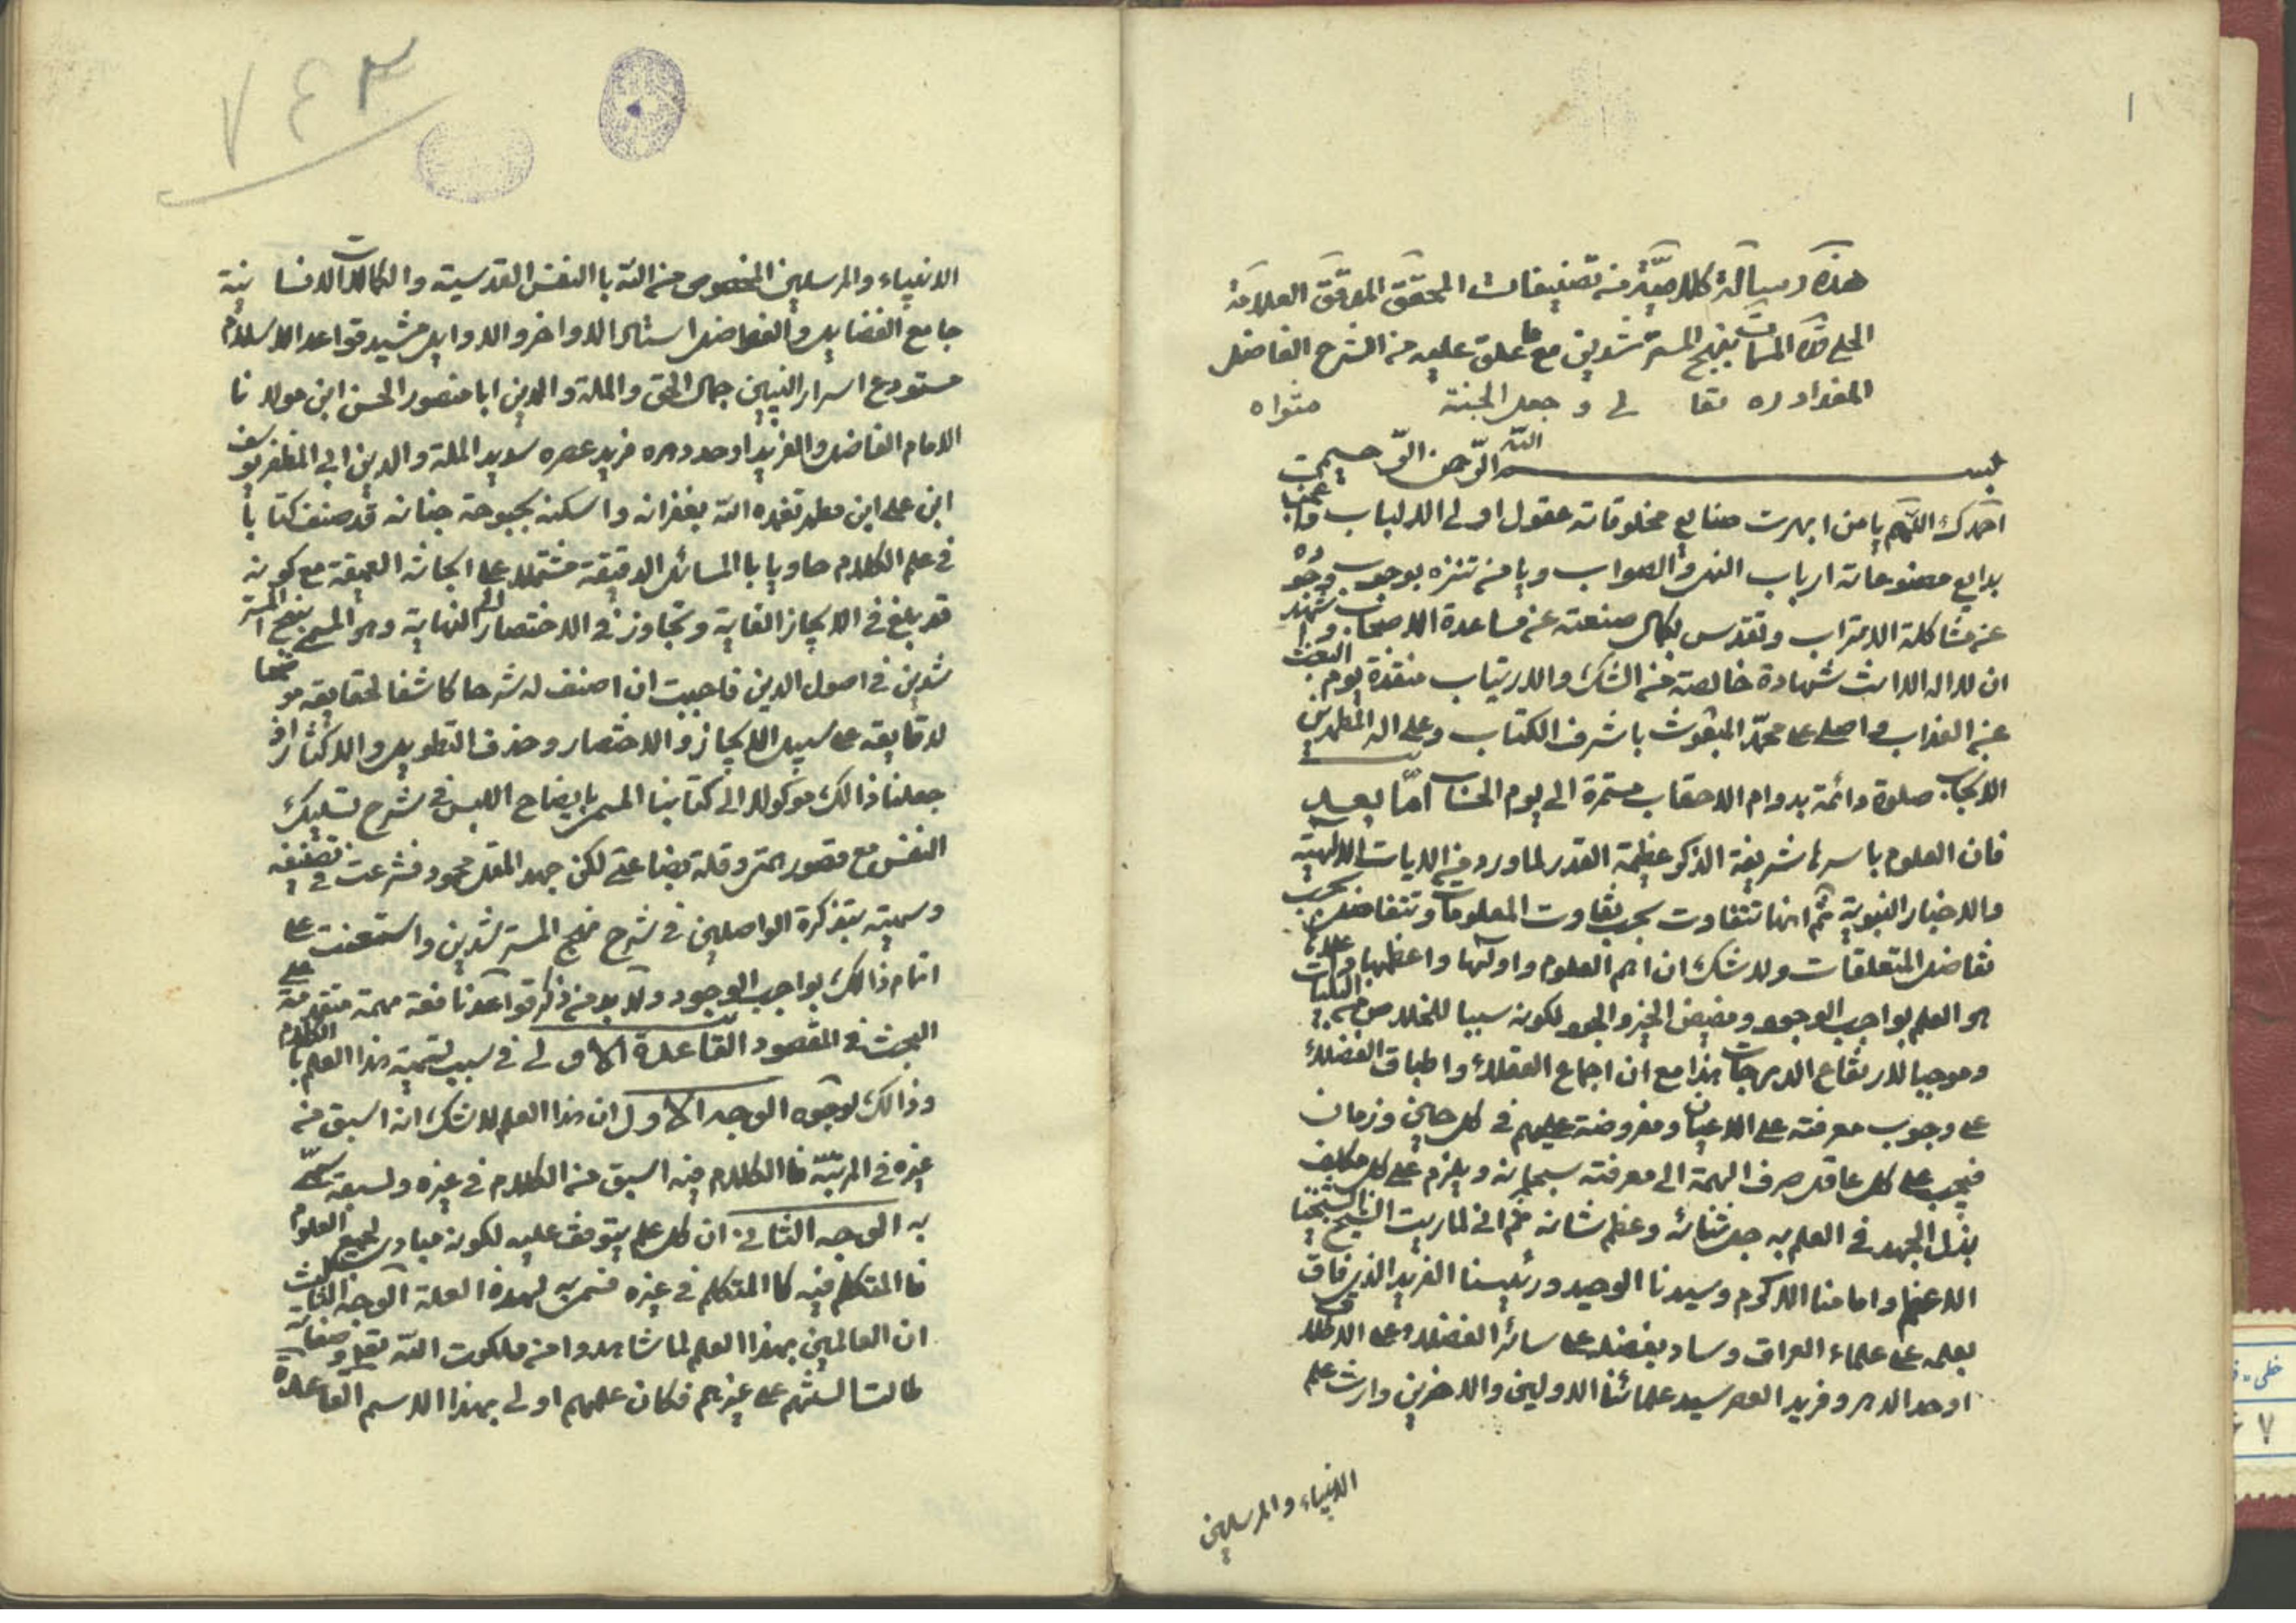 ١
هذه رسالة كلامية من تصنيفات المحقق المدقق العلامة
الحلي المسمات بنهج المسترشدين مع ما علق عليه من الشرح الفاضل
المقداد ره تعالى و جعل الجنة مثواه
بسم الله الرحمن الرحيم
احمدك اللهم يا من ابهرت صنايع مخلوقاته عقول اولى الالباب و
بدايع مصنوعاته ارباب النهى والصواب ويا من تنزه بوجوب وجوده
عن مشاكلة الاتراب وتقدس بكمال صنعته عن مساعدة الاصحاب و اشهد
ان لا اله الا انت شهادة خالصة من الشك والارتياب منقذة يوم البعث
من العذاب و اصلى على محمد المبعوث باشرف الكتاب وعلى اله المطهرين
الانجاب صلوة دائمة بدوام الاحقاب مستمرة الى يوم الحساب اما بعد
فان العلوم باسرها شريفة الذكر عظيمة القدر لما ورد من الايات الالهية
والاخبار النبوية ثم انها تتفاوت بحسب تفاوت المعلومات وتتفاضل بحسب
تفاضل المتعلقات ولا شك ان اهم العلوم واولها واعظمها واعلاها
هو العلم بواجب الوجود ومفيض الخير والجود لكونه سببا للخلاص من الهلكات
وموجبا لارتفاع الدرجات هذا مع ان اجماع العقلاء واطباق الفضلاء
على وجوب معرفته على الاعيان ومفروضة عليهم في كل حين وزمان
فيجب على كل عاقل صرف الهمة الى معرفته سبحانه ويلزم على كل مكلف
بذل الجهد في العلم به جل ثنائه وعظم شانه ثم انى لما رايت الشيخنا
الاعظم وامامنا الاكرم وسيدنا الوحيد ورئيسنا الفريد الذي فاق
بعلمه على علماء العراق وساد بفضله على سائر الفضلاء على الاطلاق
اوحد الدهر وفريد العصر سيد علمائنا الاولين والاخرين وارث علم
الانبياء والمرسلين
٧٤٣
الانبياء والمرسلين المخصوص من الله با النفس القدسية والكمالات الانسانية
جامع الفضايل والفواضل استاد الاواخر والاوايل مشيد قواعد الاسلام
مستودع اسرار النبيين جمال الحق والملة والدين ابا منصور الحسن ابن مولانا
الامام الفاضل والفريد اوحد دهره فريد عصره سديد الملة والدين ابي المظفر يوسف
ابن على ابن مطهر تغمده الله بغفرانه واسكنه بحبوحة جنانه قد صنف كتابا
في علم الكلام حاويا با المسائل الدقيقة مشتملا على ابحاثه العميقة مع كونه
قد بلغ في الايجاز الغاية وتجاوز في الاختصار الى النهاية وهو المسمى بنهج المستر
شدين في اصول الدين فاحببت ان اصنف له شرحا كاشفا لحقايقه موضحا
لدقايقه على سبيل الايجاز والاختصار وحذف التطويل والاكثار اذ
جعلنا ذالك موكولا الى كتابنا المسمى بايضاح اللبس في شرح تسليك
النفس مع قصور همتى وقلة بضاعتى لكن جهد المقل محمود فشرعت في تصنيفه
وسميته بتذكرة الواصلين في شرح نهج المسترشدين واستعنت على
اتمام ذالك بواجب الوجود ولا بد من ذكر قواعد نافعة مهمة متقدمة على
البحث في المقصود القاعدة الاولى في سبب تسمية هذا العلم با الكلام
وذالك لوجوه الوجه الاول ان هذا العلم لا شك انه اسبق من
غيره في المرتبة فا الكلام فيه اسبق من الكلام في غيره ولسبقه سمى
به الوجه الثاني ان كل علم يتوقف عليه لكونه مبادى لجميع العلوم
فا المتكلم فيه كا المتكلم في غيره فسمى به لهذه العلة الوجه الثالث
ان العالمين بهذا العلم لما شاهدوا من ملكوت الله تعالى و صفاته
طالت السنتهم على غيرهم فكان علمهم اولى بهذا الاسم القاعدة
٧